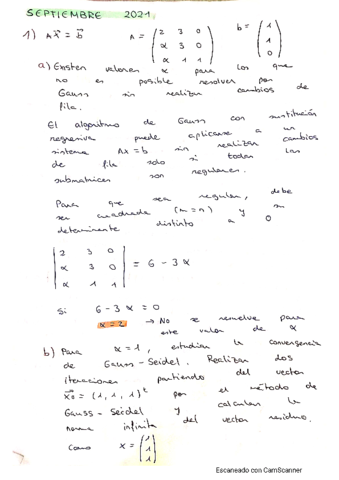 SEPTIEMBRE 2021
1) Ax⃗ = b⃗ A = ( 2 3 0 b = ( 1
α 3 0 1
α 1 1 ) 0 )
a) Existen valores α para los que
no es posible resolver por
Gauss sin realizar cambios de
fila.
El algoritmo de Gauss con sustitución
regresiva puede aplicarse a un
sistema Ax = b sin realizar cambios
de fila solo si todas las
submatrices son regulares.
Para que sea regular, debe
ser cuadrada (m=n) y su
determinante distinto a 0
| 2 3 0 |
| α 3 0 | = 6 - 3α
| α 1 1 |
Si 6 - 3α = 0
α = 2 → No se resuelve para
este valor de α
b) Para α = 1, estudiar la convergencia
de Gauss-Seidel. Realizar dos
iteraciones partiendo del vector
x⃗0 = (1, 1, 1)ᵗ por el método de
Gauss-Seidel y calcular la
norma infinita del vector residuo.
Como x = ( 1
1
1 )
Escaneado con CamScanner